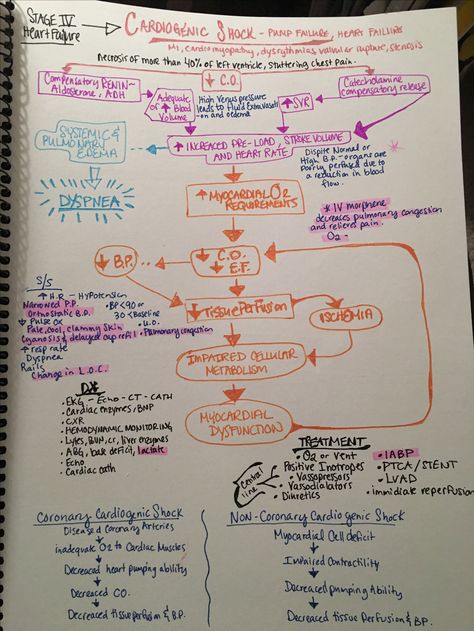 STAGE IV
Heart Failure
CARDIOGENIC SHOCK - PUMP FAILURE, HEART FAILURE
MI, cardiomyopathy, dysrythmias, valvular rupture, stenosis
necrosis of more than 40% of left ventricle, stuttering chest pain.
Compensatory RENIN~
Aldosterone, ADH
↓ C.O.
Catecholamine
compensatory release
Adequate
or ↑ Blood
Volume
High Venus pressure
leads to Fluid Extravasati
-on and oedema
↑ SVR
SYSTEMIC &
PULMONARY
EDEMA
↑ INCREASED PRE-LOAD, STROKE VOLUME
AND HEART RATE
Dispite Normal or
High B.P. - organs are
Poorly perfused due to
a reduction in blood
flow.
DYSPNEA
↑ MYOCARDIAL O2
REQUIREMENTS
* IV morphene
decreases pulmonary congestion
and relieves pain.
O2 -
↓ B.P.
↓ C.O.
E.F.
S/S
↑ H.R - HYPOTENSION
Narrowed P.P.
Orthostatic B.P.
• BP < 90 or
30 < Baseline
↓ Pulse Ox
• U.O.
Pale, cool, clammy skin
Cyanosis & delayed cap refil
• Pulmonary congestion
↑ resp rate
Dyspnea
Rails
Change in L.O.C.
↓ TISSUE PERFUSION
ISCHEMIA
IMPAIRED CELLULAR
METABOLISM
MYOCARDIAL
DYSFUNCTION
DX
• EKG - Echo - CT - CATH
• Cardiac enzymes, BNP
• CXR
• HEMODYNAMIC MONITORING
• Lytes, BUN, cr, liver enzymes
• ABG, base deficit, lactate
• Echo
• Cardiac cath
TREATMENT
• O2 or vent
Positive Inotropes
• Vasopressors
• Vasodialators
• Diuretics
central
line
• IABP
• PTCA / STENT
• LVAD
• immidiate reperfusion
Coronary Cardiogenic Shock
Diseased Coronary Arteries
inadequate O2 to Cardiac Muscles
Decreased heart pumping ability
Decreased CO.
Decreased tissue perfusion & B.P.
Non-Coronary Cardiogenic Shock
Myocardial Cell deficit
Impaired Contractility
Decreased Pumping Ability
Decreased tissue Perfusion & BP.